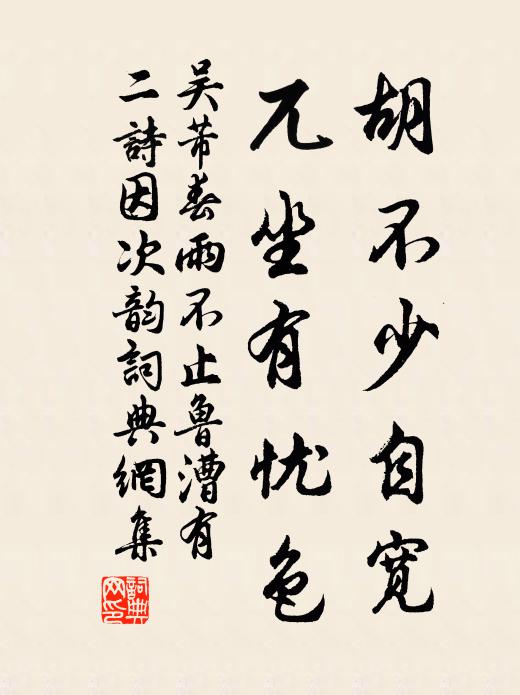 胡不少自寬
兀坐有忧色
吴芾春雨不止魯漕有
二詩因次韵詞典網集
詞典網印